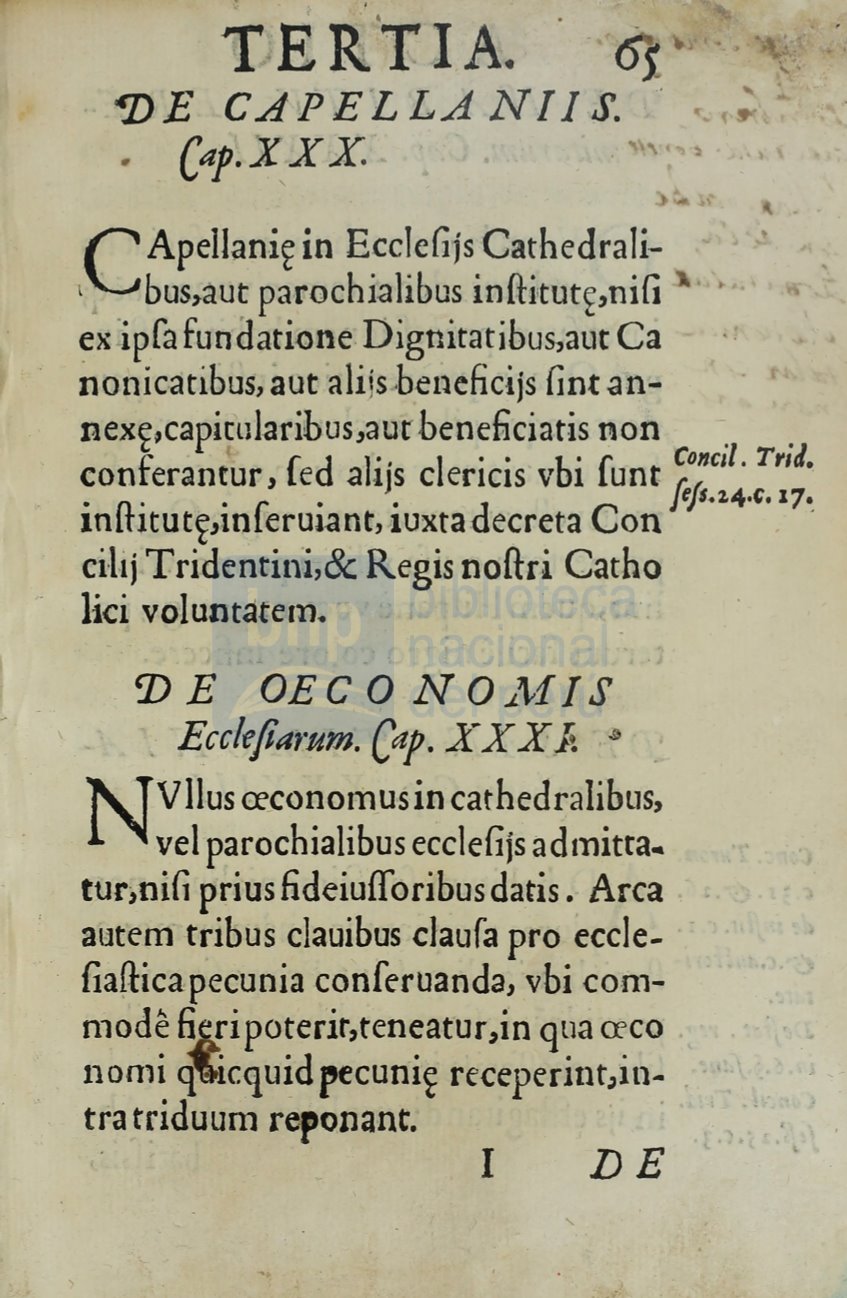 TERTIA. 65
DE CAPELLANIIS.
Cap. XXX.
CApellanię in Eccleſijs Cathedrali-
bus, aut parochialibus inſtitutę, niſi
ex ipſa fundatione Dignitatibus, aut Ca
nonicatibus, aut alijs beneficijs ſint an-
nexę, capitularibus, aut beneficiatis non
conferantur, ſed alijs clericis vbi ſunt
inſtitutę, inſeruiant, iuxta decreta Con
cilij Tridentini, & Regis noſtri Catho
lici voluntatem.
Concil. Trid.
ſeſs. 24. c. 17.
DE OECONOMIS
Eccleſiarum. Cap. XXXI.
NVllus œconomus in cathedralibus,
vel parochialibus eccleſijs admitta-
tur, niſi prius fideiuſſoribus datis. Arca
autem tribus clauibus clauſa pro eccle-
ſiaſtica pecunia conſeruanda, vbi com-
modê fieri poterit, teneatur, in qua œco
nomi quicquid pecunię receperint, in-
tra triduum reponant.
I DE
bnp biblioteca
nacional